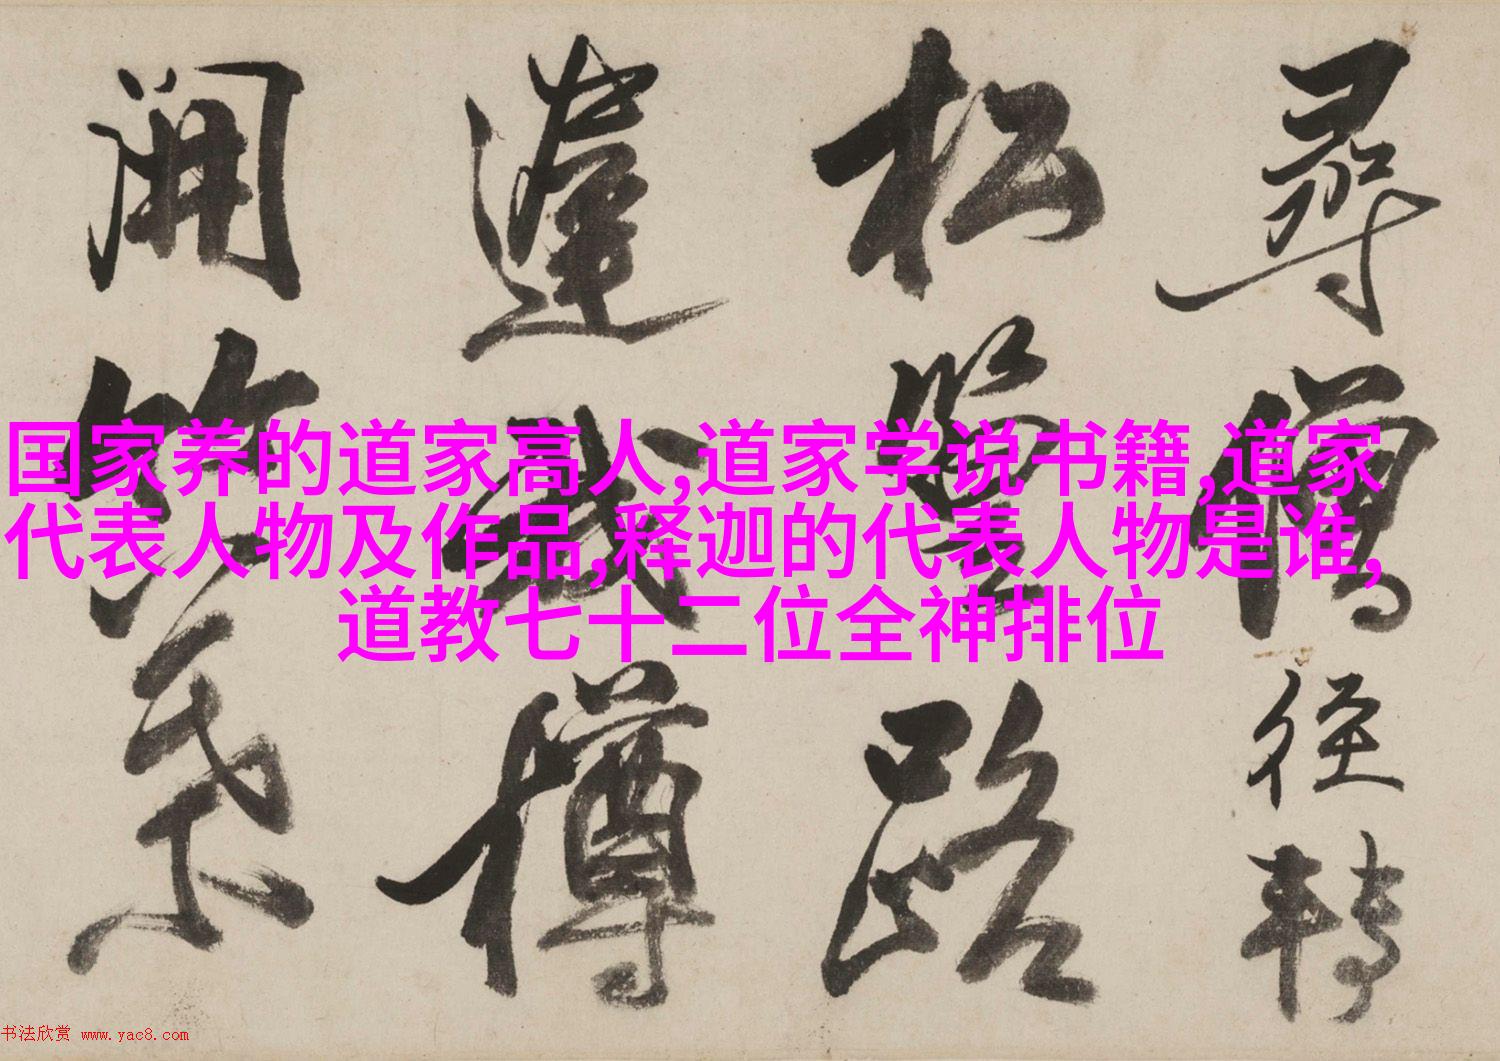 尋僧徑轉
松路
我樽
開
国家养的道家高人,道家学说书籍,道家
代表人物及作品,释迦的代表人物是谁,
道教七十二位全神排位
书法欣赏 www.yac8.com